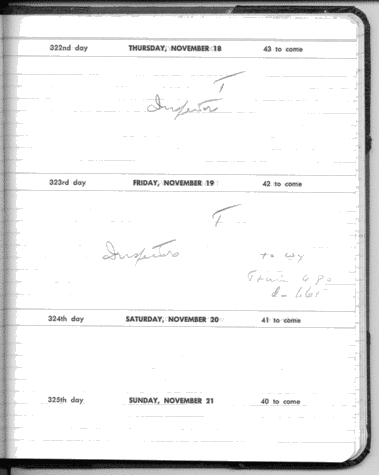 322nd day THURSDAY, NOVEMBER 18 43 to come
T
Inspectors
323rd day FRIDAY, NOVEMBER 19 42 to come
T
Inspectors
to
Train
324th day SATURDAY, NOVEMBER 20 41 to come
325th day SUNDAY, NOVEMBER 21 40 to come